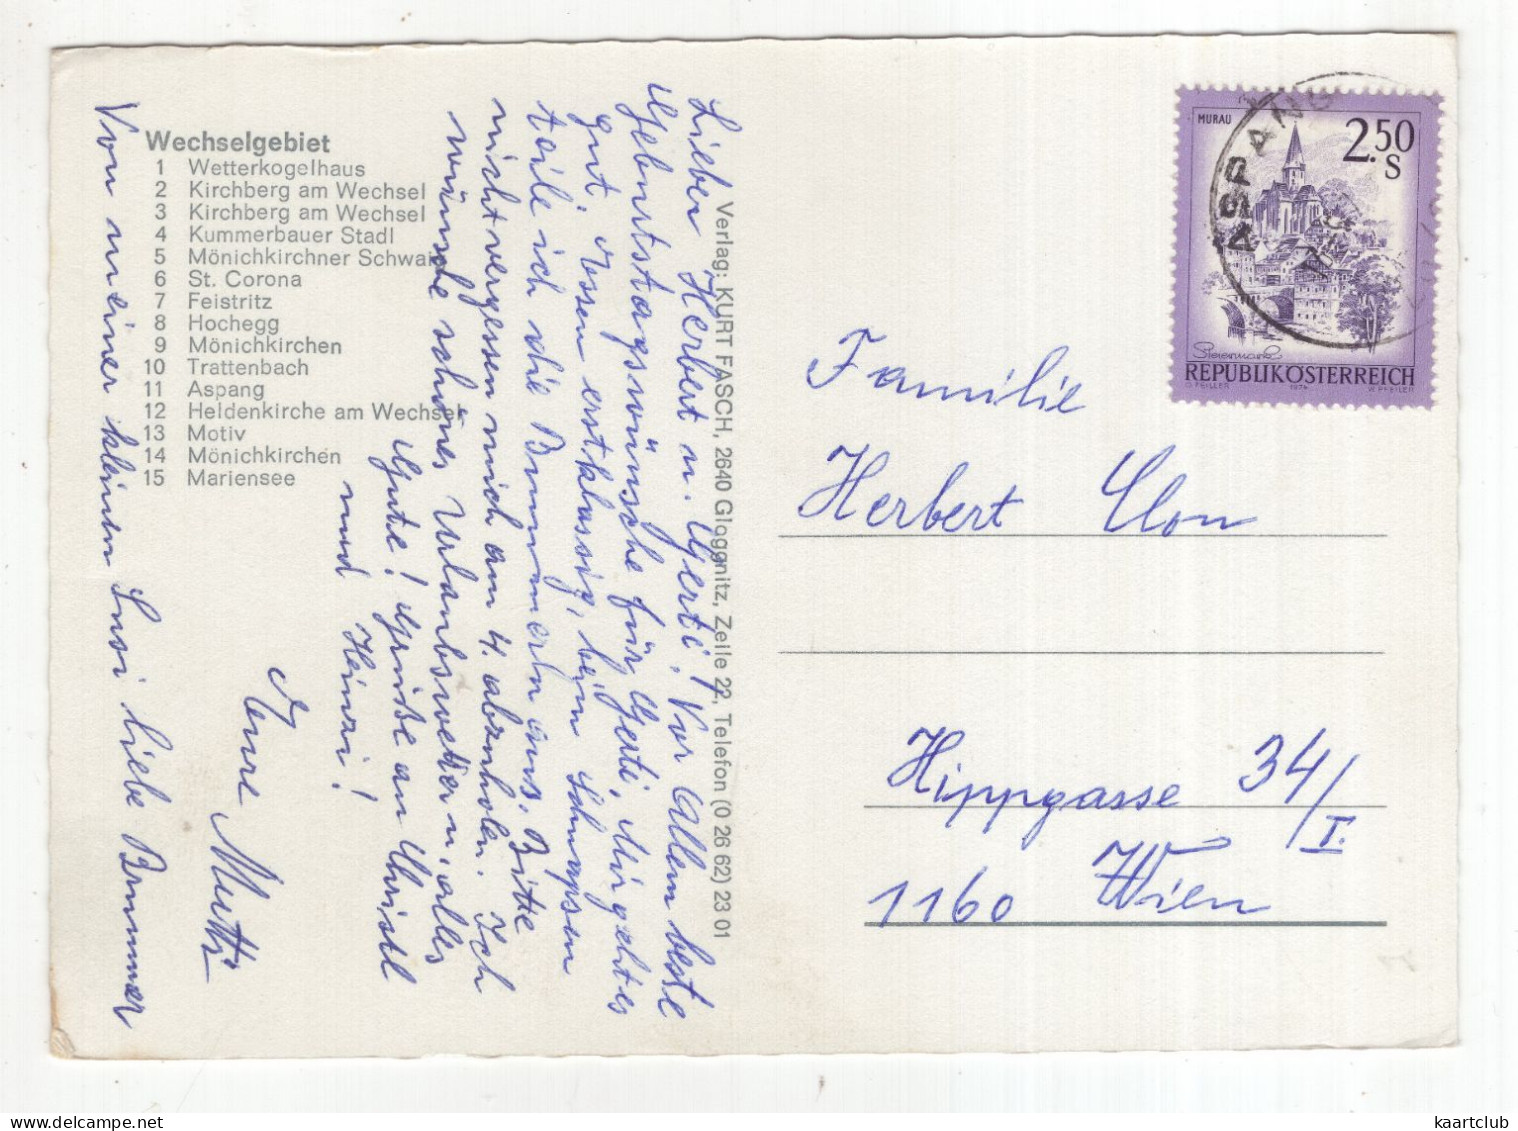 Wechselgebiet
1 Wetterkogelhaus
2 Kirchberg am Wechsel
3 Kirchberg am Wechsel
4 Kummerbauer Stadl
5 Mönichkirchner Schwaig
6 St. Corona
7 Feistritz
8 Hochegg
9 Mönichkirchen
10 Trattenbach
11 Aspang
12 Heldenkirche am Wechsel
13 Motiv
14 Mönichkirchen
15 Mariensee
Verlag: KURT FASCH, 2640 Gloggnitz, Zeile 22, Telefon (0 26 62) 23 01
Lieber Herbert u. Gerti! Vor Allem beste
Geburtstagswünsche für Gerti, Mir geht es
gut, Essen erstklassig, beim Schnapsen
teile ich die Bummerln aus. Bitte
nicht vergessen mich am 4. abzuholen. Ich
wünsche schönes Urlaubswetter u. alles
Gute! Grüße an Christl
und Heinzi!
Eure Mutti
Von meiner kleinen Susi liebe Brummer
MURAU
2.50
S
Steiermark
REPUBLIK ÖSTERREICH
1974
ASPANG
Familie
Herbert Clon
Hippgasse 34/I.
1160 Wien
kaartclub